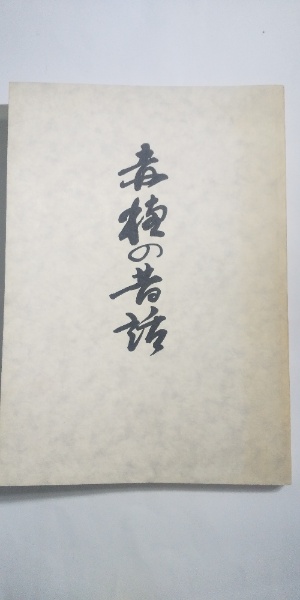 赤穂の昔話